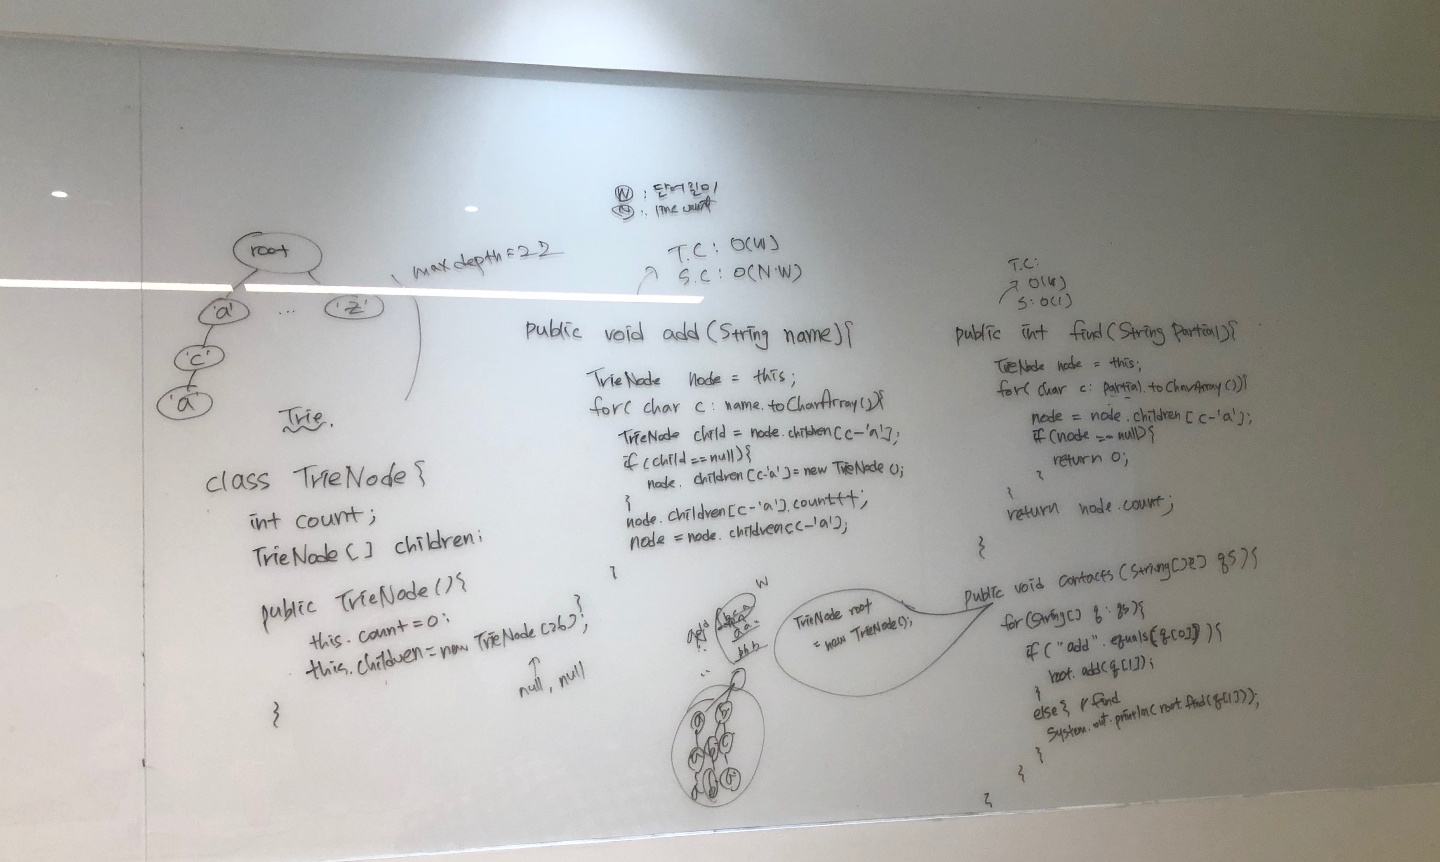 root
'a'
...
'z'
'c'
'a'
max depth = 22
Trie.
class TrieNode {
int count;
TrieNode[] children;
public TrieNode(){
this.count = 0;
}
this.children = new TrieNode[26];
null, null
}
W : 단어길이
N : line count
T.C : O(W)
S.C : O(N·W)
public void add(String name){
TrieNode node = this;
for( char c : name.toCharArray()){
TrieNode child = node.children[c-'a'];
if(child == null){
node. children[c-'a'] = new TrieNode();
}
node.children[c-'a'].count++;
node = node.children[c-'a'];
}
add
W
aa
bbb
a
b
a
b
c
b
TrieNode root
= new TrieNode();
T.C:
O(W)
S: O(1)
public int find(String partial){
TrieNode node = this;
for( char c: partial.toCharArray()){
node = node.children[c-'a'];
if(node == null){
return 0;
}
}
return node.count;
}
public void contacts(String[][] qs){
for(String[] q : qs){
if("add".equals(q[0])){
root.add(q[1]);
}
else{ // find
System.out.println(root.find(q[1]));
}
}
}